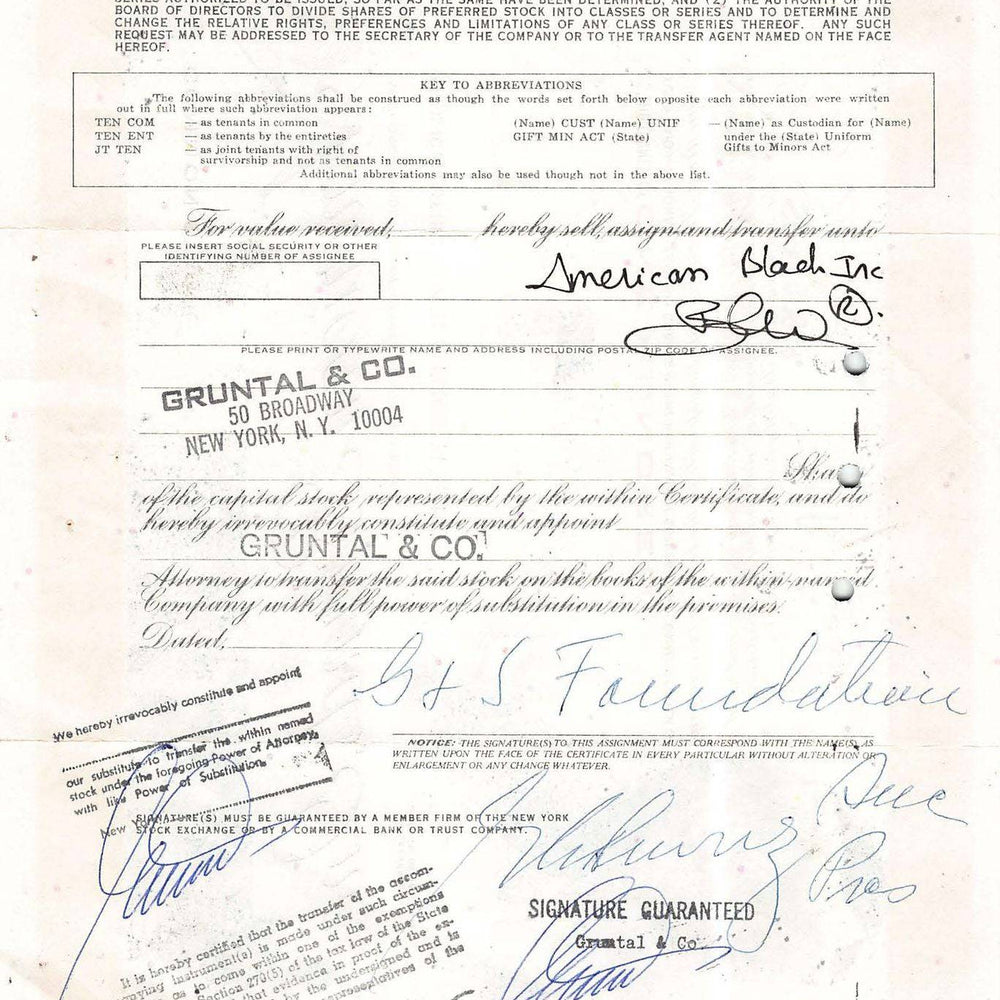 SERIES AUTHORIZED TO BE ISSUED, SO FAR AS THE SAME HAVE BEEN DETERMINED, AND (2) THE AUTHORITY OF THE
BOARD OF DIRECTORS TO DIVIDE SHARES OF PREFERRED STOCK INTO CLASSES OR SERIES AND TO DETERMINE AND
CHANGE THE RELATIVE RIGHTS, PREFERENCES AND LIMITATIONS OF ANY CLASS OR SERIES THEREOF. ANY SUCH
REQUEST MAY BE ADDRESSED TO THE SECRETARY OF THE COMPANY OR TO THE TRANSFER AGENT NAMED ON THE FACE
HEREOF.
KEY TO ABBREVIATIONS
The following abbreviations shall be construed as though the words set forth below opposite each abbreviation were written
out in full where such abbreviation appears:
TEN COM — as tenants in common (Name) CUST (Name) UNIF — (Name) as Custodian for (Name)
TEN ENT — as tenants by the entireties GIFT MIN ACT (State) under the (State) Uniform
JT TEN — as joint tenants with right of Gifts to Minors Act
survivorship and not as tenants in common
Additional abbreviations may also be used though not in the above list.
For value received, hereby sell, assign and transfer unto
PLEASE INSERT SOCIAL SECURITY OR OTHER
IDENTIFYING NUMBER OF ASSIGNEE
American Black Inc
R
PLEASE PRINT OR TYPEWRITE NAME AND ADDRESS INCLUDING POSTAL ZIP CODE OF ASSIGNEE.
GRUNTAL & CO.
50 BROADWAY
NEW YORK, N. Y. 10004
of the capital stock represented by the within Certificate, and do
hereby irrevocably constitute and appoint
GRUNTAL & CO.
Attorney to transfer the said stock on the books of the within-named
Company with full power of substitution in the premises.
Dated,
G & S Foundation
We hereby irrevocably constitute and appoint
our substitute to transfer the within named
stock under the foregoing Power of Attorney,
with like Power of Substitution.
New
NOTICE: THE SIGNATURE(S) TO THIS ASSIGNMENT MUST CORRESPOND WITH THE NAME(S) AS
WRITTEN UPON THE FACE OF THE CERTIFICATE IN EVERY PARTICULAR WITHOUT ALTERATION OR
ENLARGEMENT OR ANY CHANGE WHATEVER.
SIGNATURE(S) MUST BE GUARANTEED BY A MEMBER FIRM OF THE NEW YORK
STOCK EXCHANGE OR BY A COMMERCIAL BANK OR TRUST COMPANY.
Pres
SIGNATURE GUARANTEED
Gruntal & Co.
It is hereby certified that the transfer of the accom-
panying instrument(s) is made under such circum-
as to come within one of the exemptions
Section 270(5) of the tax law of the State
that evidence in proof of the ex-
by the undersigned and is
representatives of the